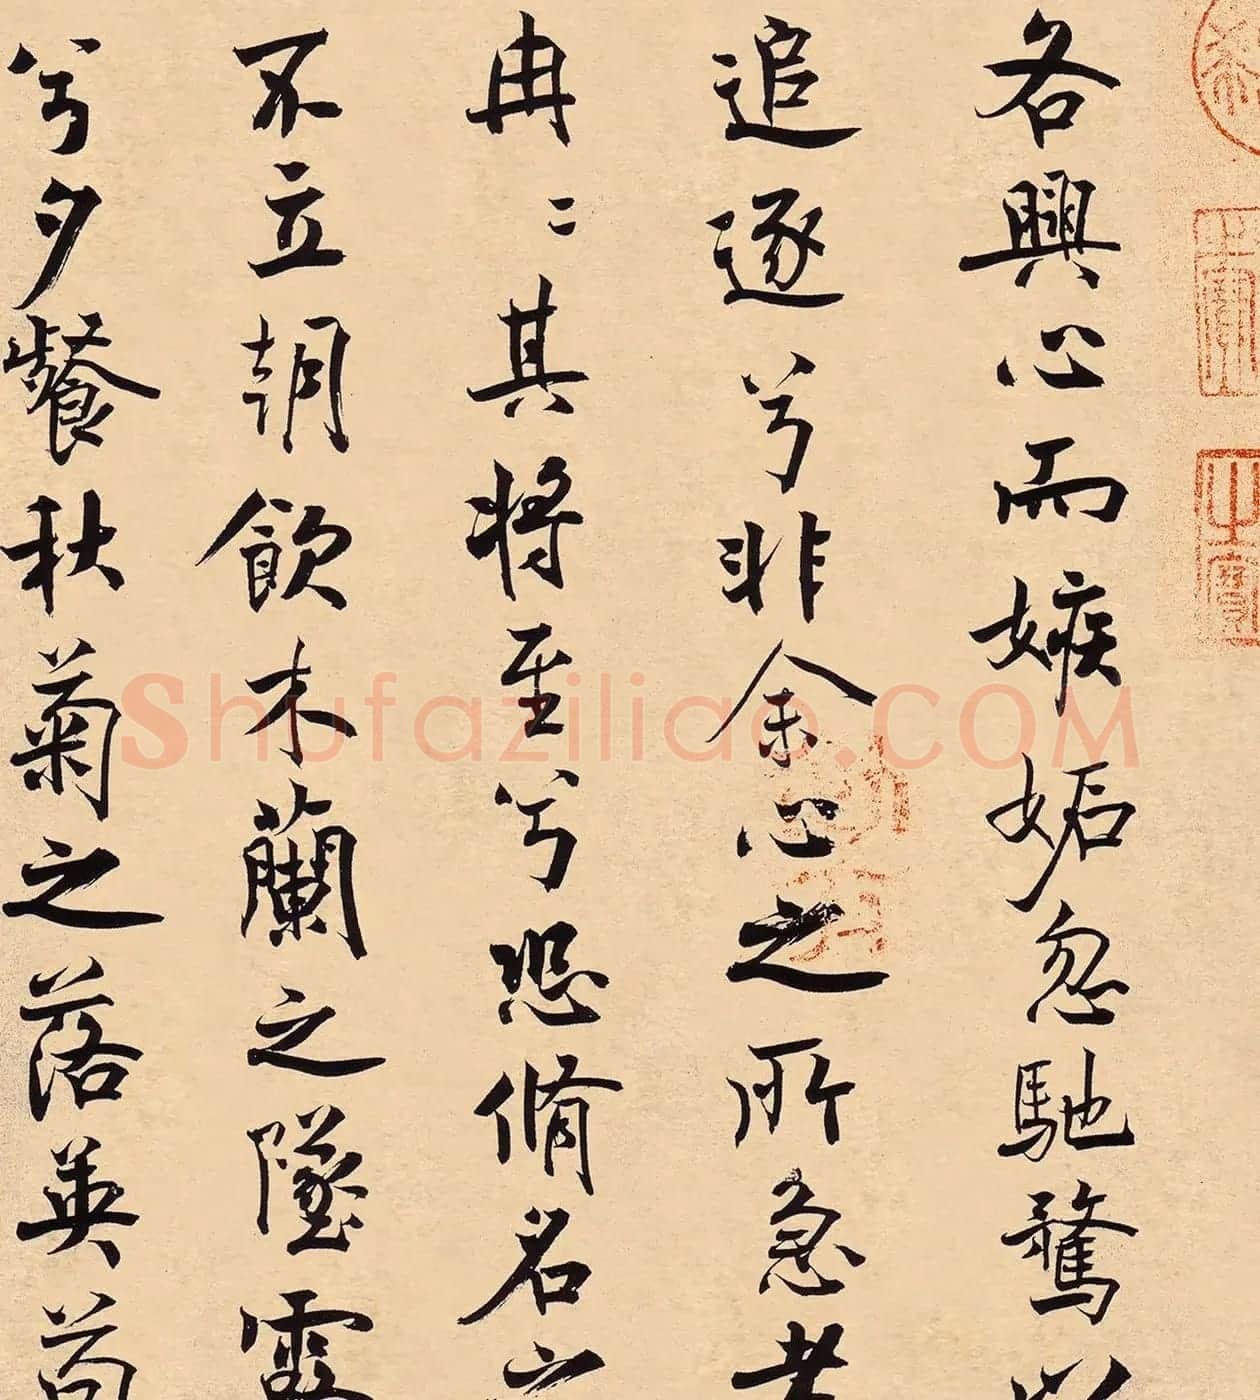 各興心而嫉妬忽馳騖以
追逐兮非余心之所急老
冉〻其將至兮恐脩名之
不立朝飲木蘭之墜露
兮夕餐秋菊之落英苟
Shufaziliao.COM